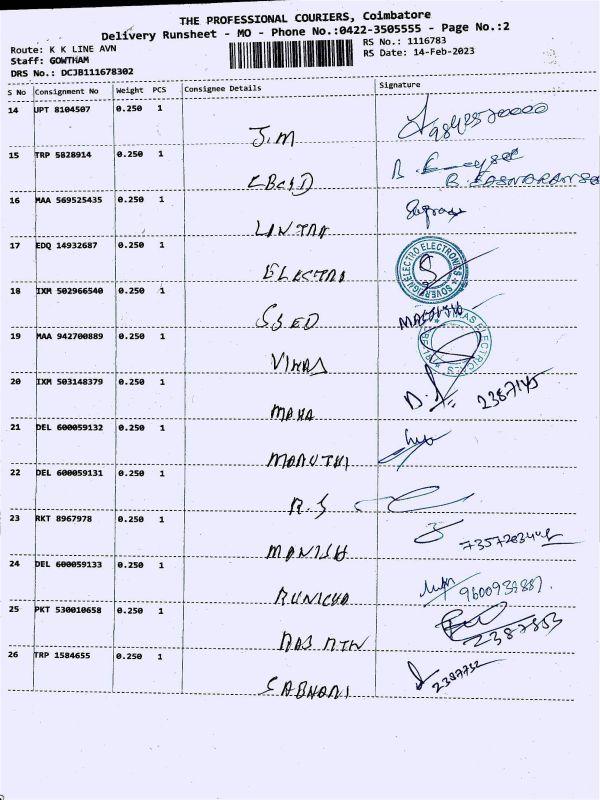 THE PROFESSIONAL COURIERS, Coimbatore
Delivery Runsheet - MO - Phone No.:0422-3505555 - Page No.:2
Route: K K LINE AVN
Staff: GOWTHAM
DRS No.: DCJB111678302
RS No.: 1116783
RS Date: 14-Feb-2023
S No Consignment No Weight PCS Consignee Details Signature
14 UPT 8104507 0.250 1
J.M
15 TRP 5828914 0.250 1
16 MAA 569525435 0.250 1
17 EDQ 14932687 0.250 1
ELECTRA
SOVEREIGN ELECTRO ELECTRONICS
18 IXM 502966540 0.250 1
SSED
19 MAA 942700889 0.250 1
VIKAS
20 IXM 503148379 0.250 1
MAHA 2387145
21 DEL 600059132 0.250 1
MARUTHI
22 DEL 600059131 0.250 1
R.S
23 RKT 8967978 0.250 1
MANISH
24 DEL 600059133 0.250 1
RUNICHA
25 PKT 530010658 0.250 1
2387353
26 TRP 1584655 0.250 1
SABHARI 2387732